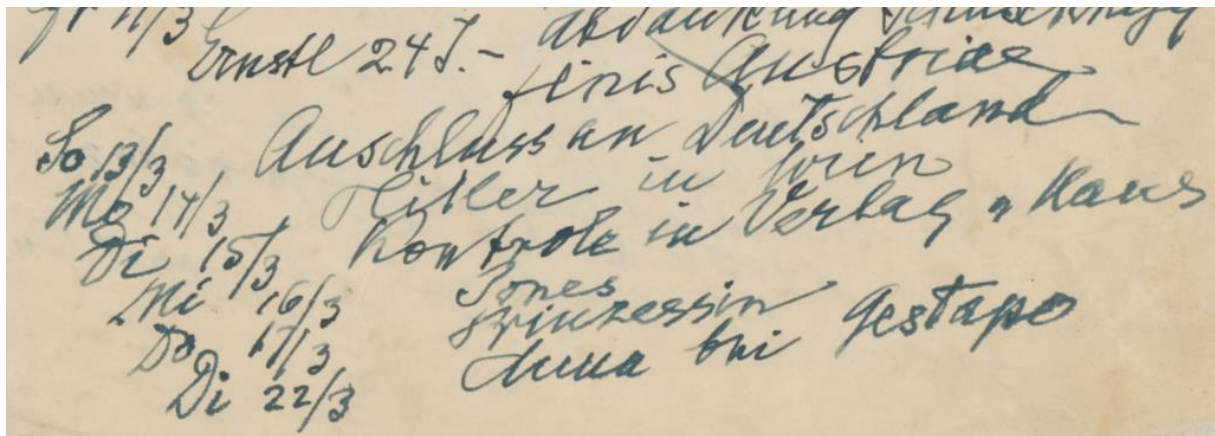 Fr 11/3 Ernstl 24 J.- Abdankung Schuschnigg
finis Austriae
So 13/3 Anschluss an Deutschland
Mo 14/3 Hitler in Wien
Di 15/3 Kontrole in Verlag u Haus
Mi 16/3 Jones
Do 17/3 Prinzessin
Di 22/3 Anna bei Gestapo